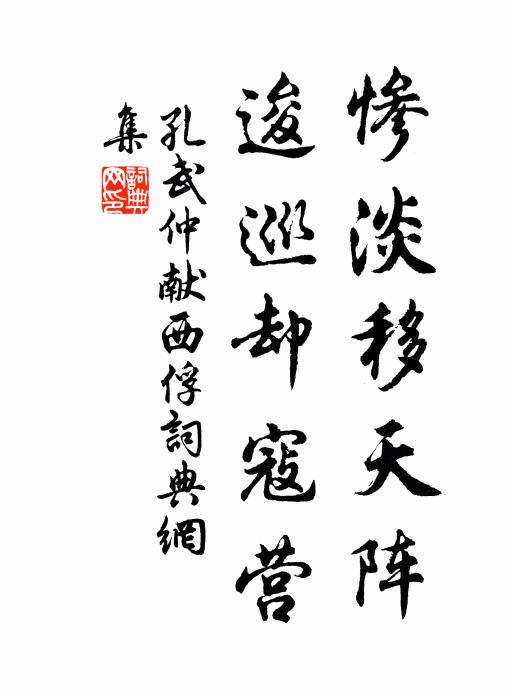 惨淡移天阵
逡巡却寇营
孔武仲献西俘詞典網
集
詞典网印